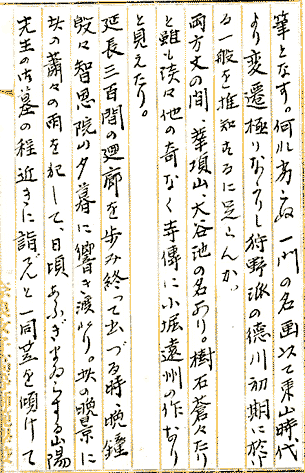 筆となす。何れ劣らぬ一門の名画以て東山時代
より変遷極りなくし狩野派の徳川初期に於け
る一般を推知するに足らんか。
両方丈の間、華頂山、大谷池の名あり。樹石蒼々たり
と雖も淡々他の奇なく寺傳に小堀遠州の作なり
と見えたり。
延長三百間の廻廊を歩み終って出づる時、晩鐘
殷々智恩院の夕暮に響き渡れり。其の晩景に
其の蕭々の雨を犯して、日頃あふぎまゐらする山陽
先生の御墓の程近きに詣でんと一同笠を傾けて